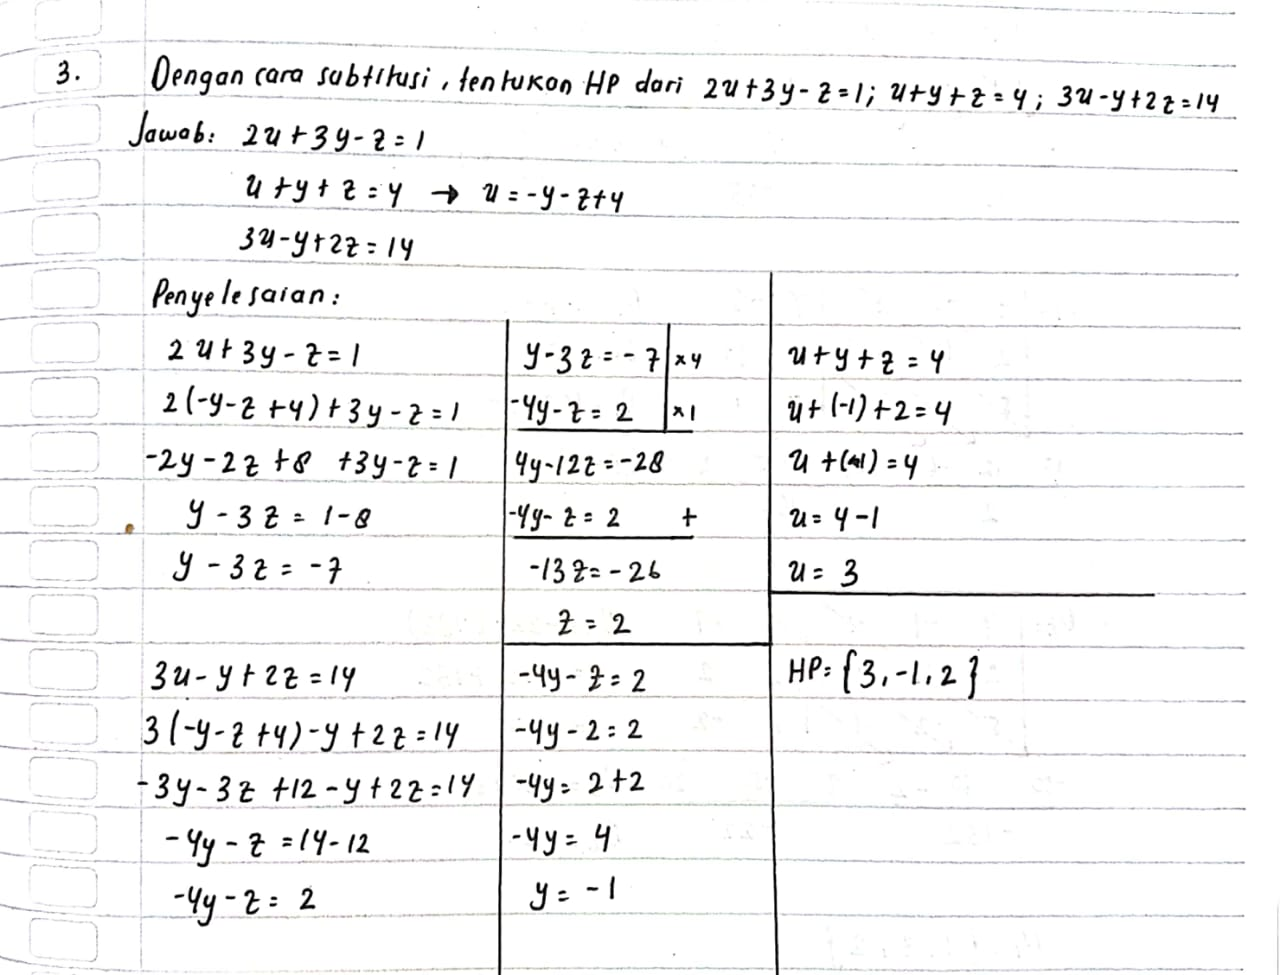 3. Dengan cara subtitusi, tentukan HP dari 2x+3y-z=1; x+y+z=4; 3x-y+2z=14
Jawab: 2x+3y-z=1
x+y+z=4 → x=-y-z+4
3x-y+2z=14
Penyelesaian:
2x+3y-z=1
2(-y-z+4)+3y-z=1
-2y-2z+8 +3y-z=1
y-3z=1-8
y-3z=-7
3x-y+2z=14
3(-y-z+4)-y+2z=14
-3y-3z+12-y+2z=14
-4y-z=14-12
-4y-z=2
y-3z=-7 |x4
-4y-z=2 |x1
4y-12z=-28
-4y-z=2 +
-13z=-26
z=2
-4y-z=2
-4y-2=2
-4y=2+2
-4y=4
y=-1
x+y+z=4
x+(-1)+2=4
x+(1)=4
x=4-1
x=3
HP={3,-1,2}